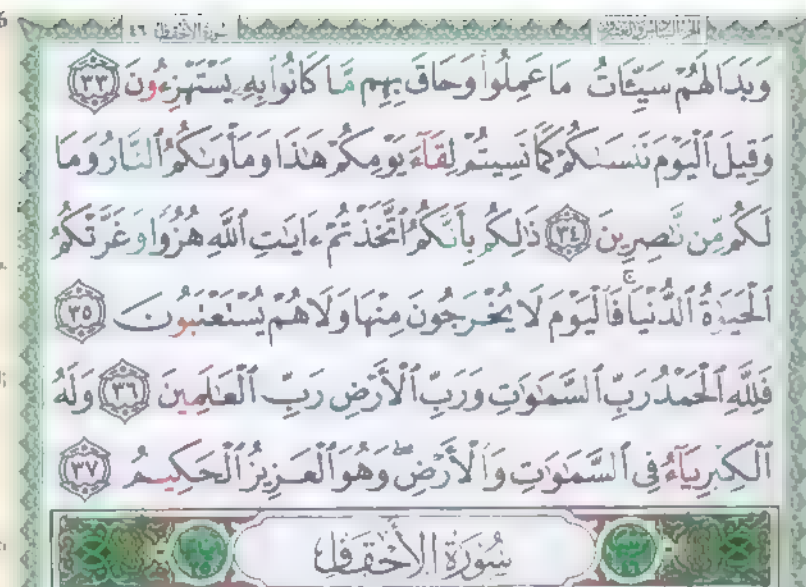 الجزء السادس والعشرون سورة الأحقاف ٤٦
وَبَدَا لَهُمْ سَيِّـَٔاتُ مَا عَمِلُوا۟ وَحَاقَ بِهِم مَّا كَانُوا۟ بِهِۦ يَسْتَهْزِءُونَ ٣٣
وَقِيلَ ٱلْيَوْمَ نَنسَىٰكُمْ كَمَا نَسِيتُمْ لِقَآءَ يَوْمِكُمْ هَٰذَا وَمَأْوَىٰكُمُ ٱلنَّارُ وَمَا
لَكُم مِّن نَّـٰصِرِينَ ٣٤ ذَٰلِكُم بِأَنَّكُمُ ٱتَّخَذْتُمْ ءَايَـٰتِ ٱللَّهِ هُزُوًا وَغَرَّتْكُمُ
ٱلْحَيَوٰةُ ٱلدُّنْيَا ۚ فَٱلْيَوْمَ لَا يُخْرَجُونَ مِنْهَا وَلَا هُمْ يُسْتَعْتَبُونَ ٣٥
فَلِلَّهِ ٱلْحَمْدُ رَبِّ ٱلسَّمَـٰوَٰتِ وَرَبِّ ٱلْأَرْضِ رَبِّ ٱلْعَـٰلَمِينَ ٣٦ وَلَهُ
ٱلْكِبْرِيَآءُ فِى ٱلسَّمَـٰوَٰتِ وَٱلْأَرْضِ ۖ وَهُوَ ٱلْعَزِيزُ ٱلْحَكِيمُ ٣٧
سُورَةُ الأَحْقَافِ